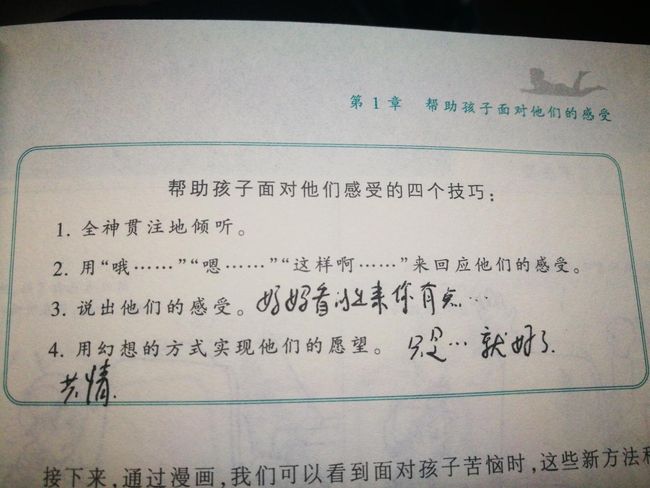 第1章 帮助孩子面对他们的感受
帮助孩子面对他们感受的四个技巧：
1. 全神贯注地倾听。
2. 用“哦……”“嗯……”“这样啊……”来回应他们的感受。
3. 说出他们的感受。妈妈看的出来你有点…
4. 用幻想的方式实现他们的愿望。 只是…就好了.
共情.
接下来，通过漫画，我们可以看到面对孩子苦恼时，这些新方法和